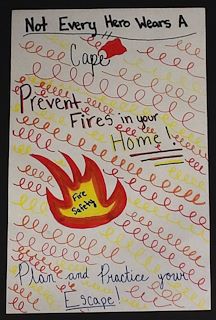 Not Every Hero Wears A
Cape
Prevent
Fires in your
Home!
Fire
Safety
Plan and Practice your
Escape!